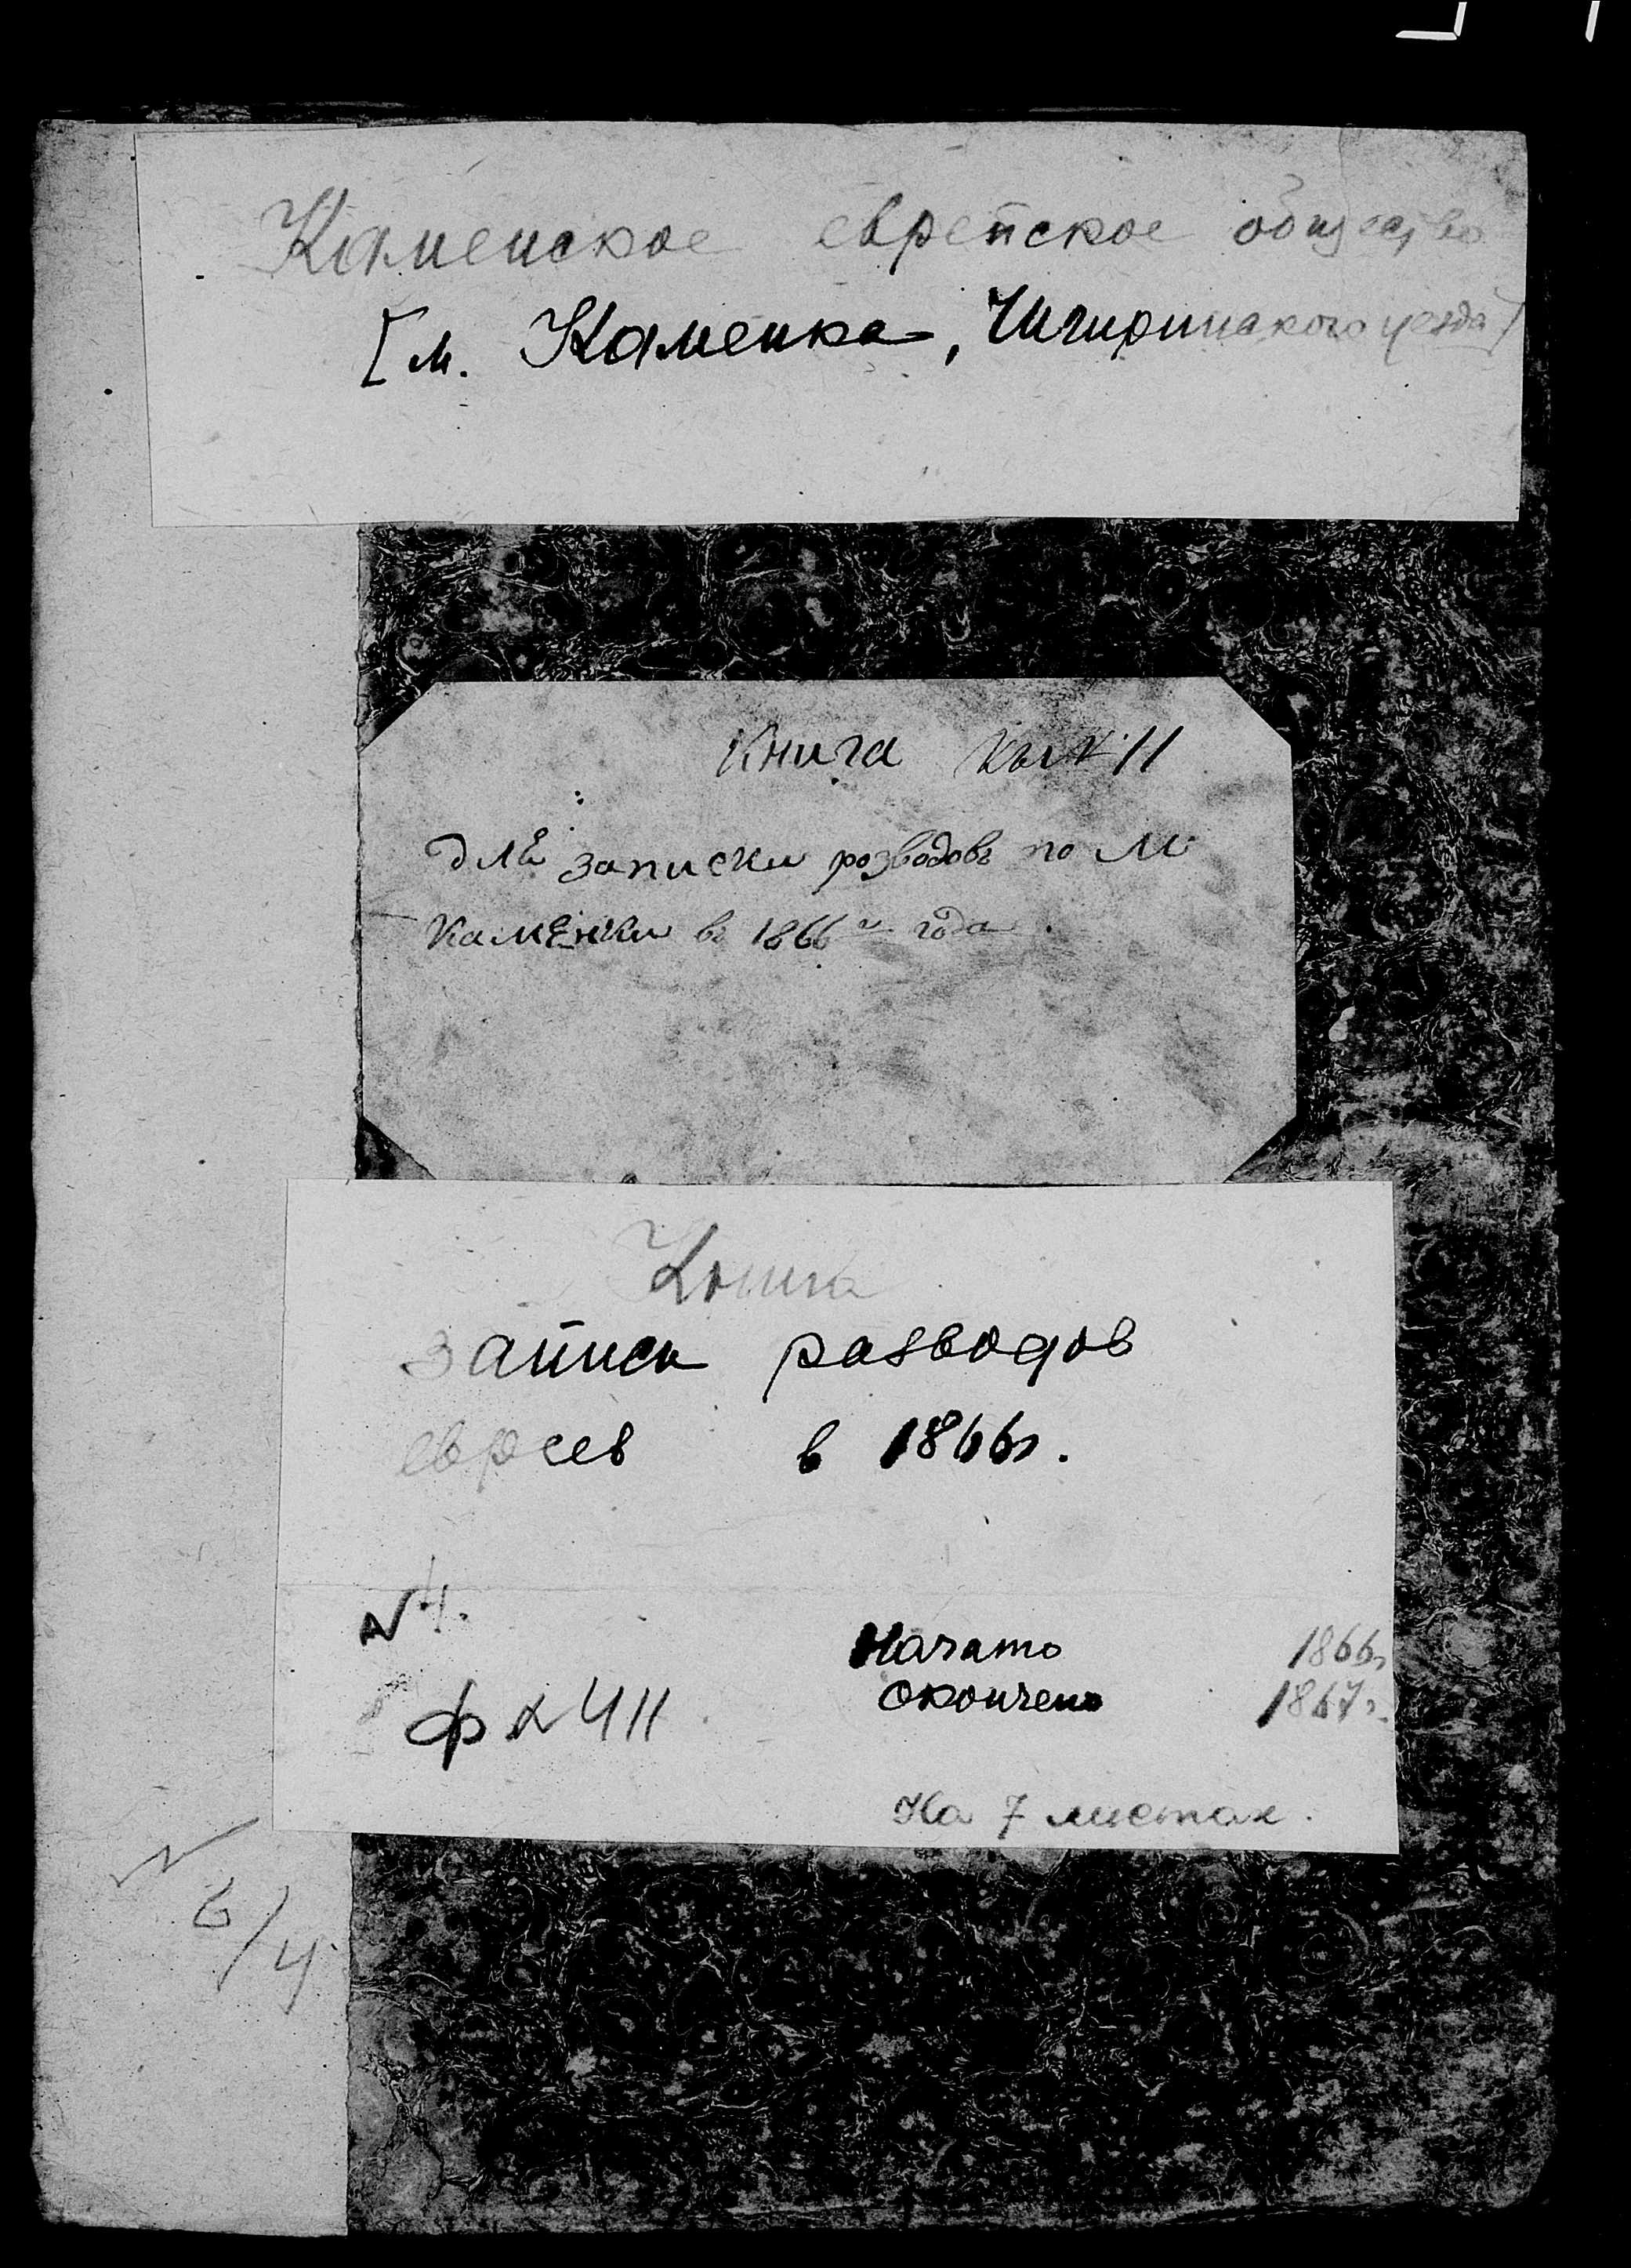 Каменское еврейское общество
[м. Каменка, Чигиринского уезда]
Книга
для записки розводовъ по М.
Каменки въ 1866 года.
Книга
записи разводов
евреев в 1866г.
Начато 1866г
Окончено 1867г.
ф № 411
На 7 листах.
№
6/4